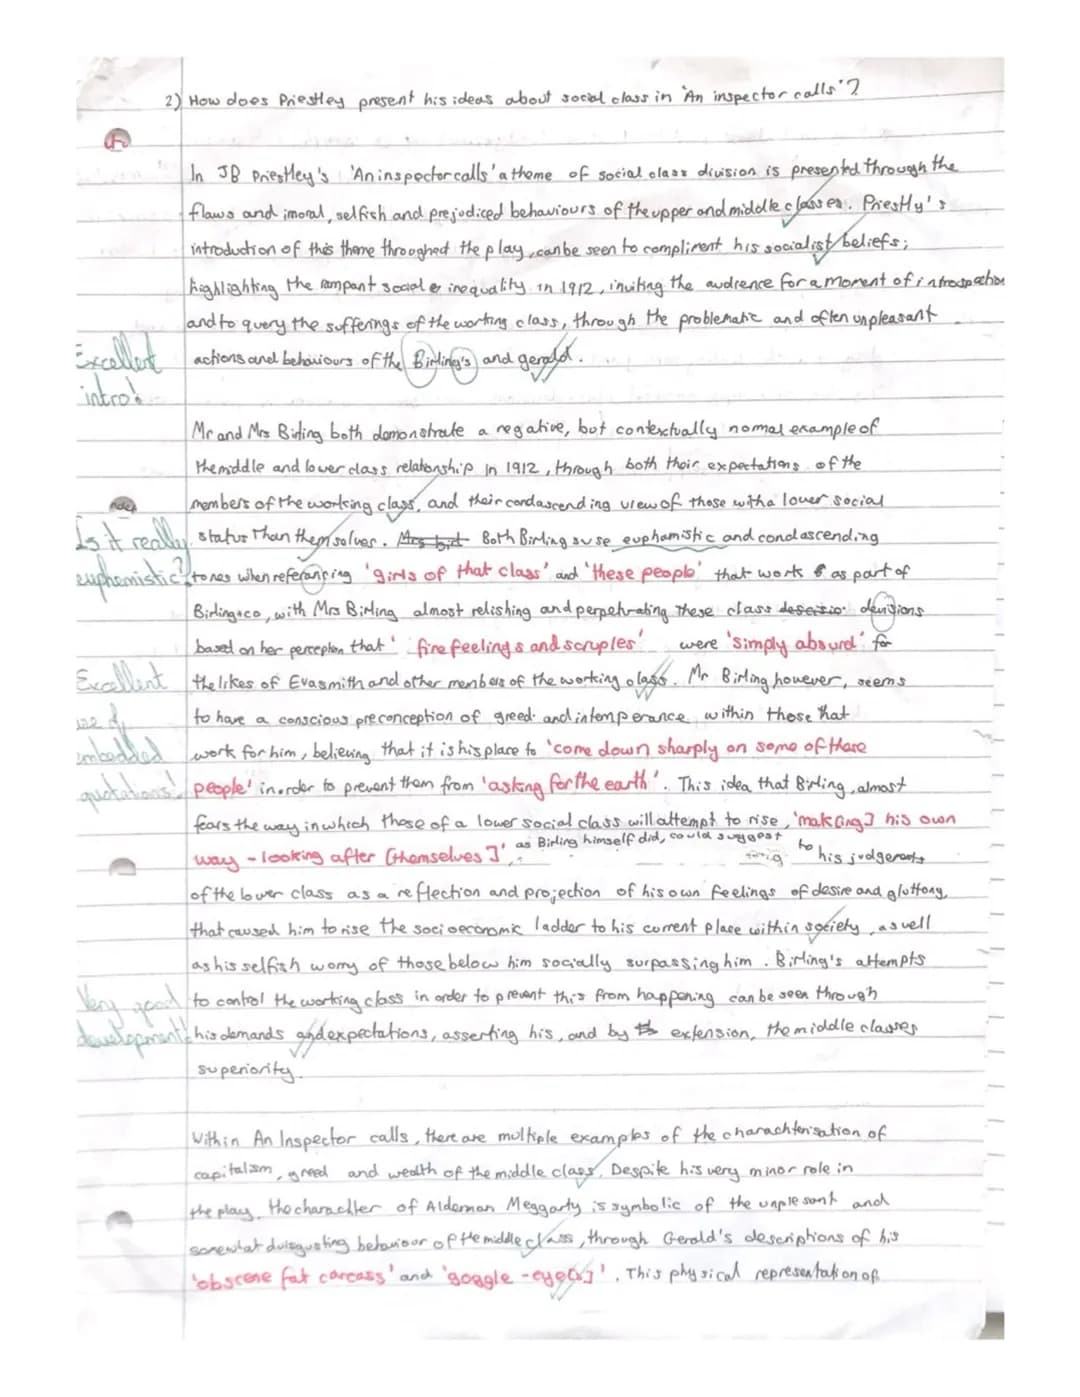 2) How does Priestley present his ideas about social class in 'An inspector calls'?
In JB Priestley's 'An inspector calls' a theme of social class division is presented through the
flaws and imoral, selfish and prejudiced behaviours of the upper and middle classes. Priestly's
introduction of this theme throughout the play, can be seen to compliment his socialist beliefs;
highlighting the rampant social inequality in 1912, inviting the audience for a moment of introspection
and to query the sufferings of the working class, through the problematic and often unpleasant
actions and behaviours of the Birling's and gerald.
Excellent
intro!
Mr and Mrs Birling both demonstrate a negative, but contextually normal example of
the middle and lower class relationship in 1912, through both their expectations of the
members of the working class, and their condascending view of those with a lower social
status than themselves. Both Birlings use euphamistic and condascending
Is it really
euphemistic?
tones when referancing 'girls of that class' and 'these people' that work as part of
Birling+co, with Mrs Birling almost relishing and perpetrating these class devisions
based on her perception that 'fine feelings and scruples' were 'simply absurd' for
the likes of Eva smith and other members of the working class. Mr Birling however, seems
to have a conscious preconception of greed and intemperance within those that
work for him, believing that it is his place to 'come down sharply on some of these
people' in order to prevent them from 'asking for the earth'. This idea that Birling, almost
Excellent
use of
embedded
quotations!
fears the way in which those of a lower social class will attempt to rise, 'mak[ing] his own
way - looking after [themselves]', as Birling himself did, could suggest to his judgements
of the lower class as a reflection and projection of his own feelings of desire and gluttony,
that caused him to rise the socioeconomic ladder to his current place within society, as well
as his selfish worry of those below him socially surpassing him. Birling's attempts
to control the working class in order to prevent this from happening can be seen through
his demands and expectations, asserting his, and by extension, the middle classes
superiority.
Very good
development!
Within An Inspector calls, there are multiple examples of the charachterisation of
capitalism, greed and wealth of the middle class. Despite his very minor role in
the play, the charachter of Alderman Meggarty is symbolic of the unplesant and
somewhat duisgusting behaviour of the middle class, through Gerald's descriptions of his
'obscene fat carcass' and 'goggle-eye[s]'. This physical representation of